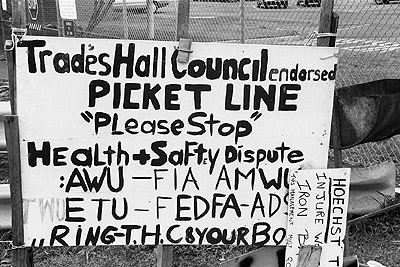 Trades Hall Council endorsed
PICKET LINE
"PLeaseStop"
HeaLth+Safty Dispute
:AWU-FIA AMWU
TWU ETU-FEDFA-ADS
RING-T.H.C&YOURBO
HOECHST T
INJURE W
IRON B